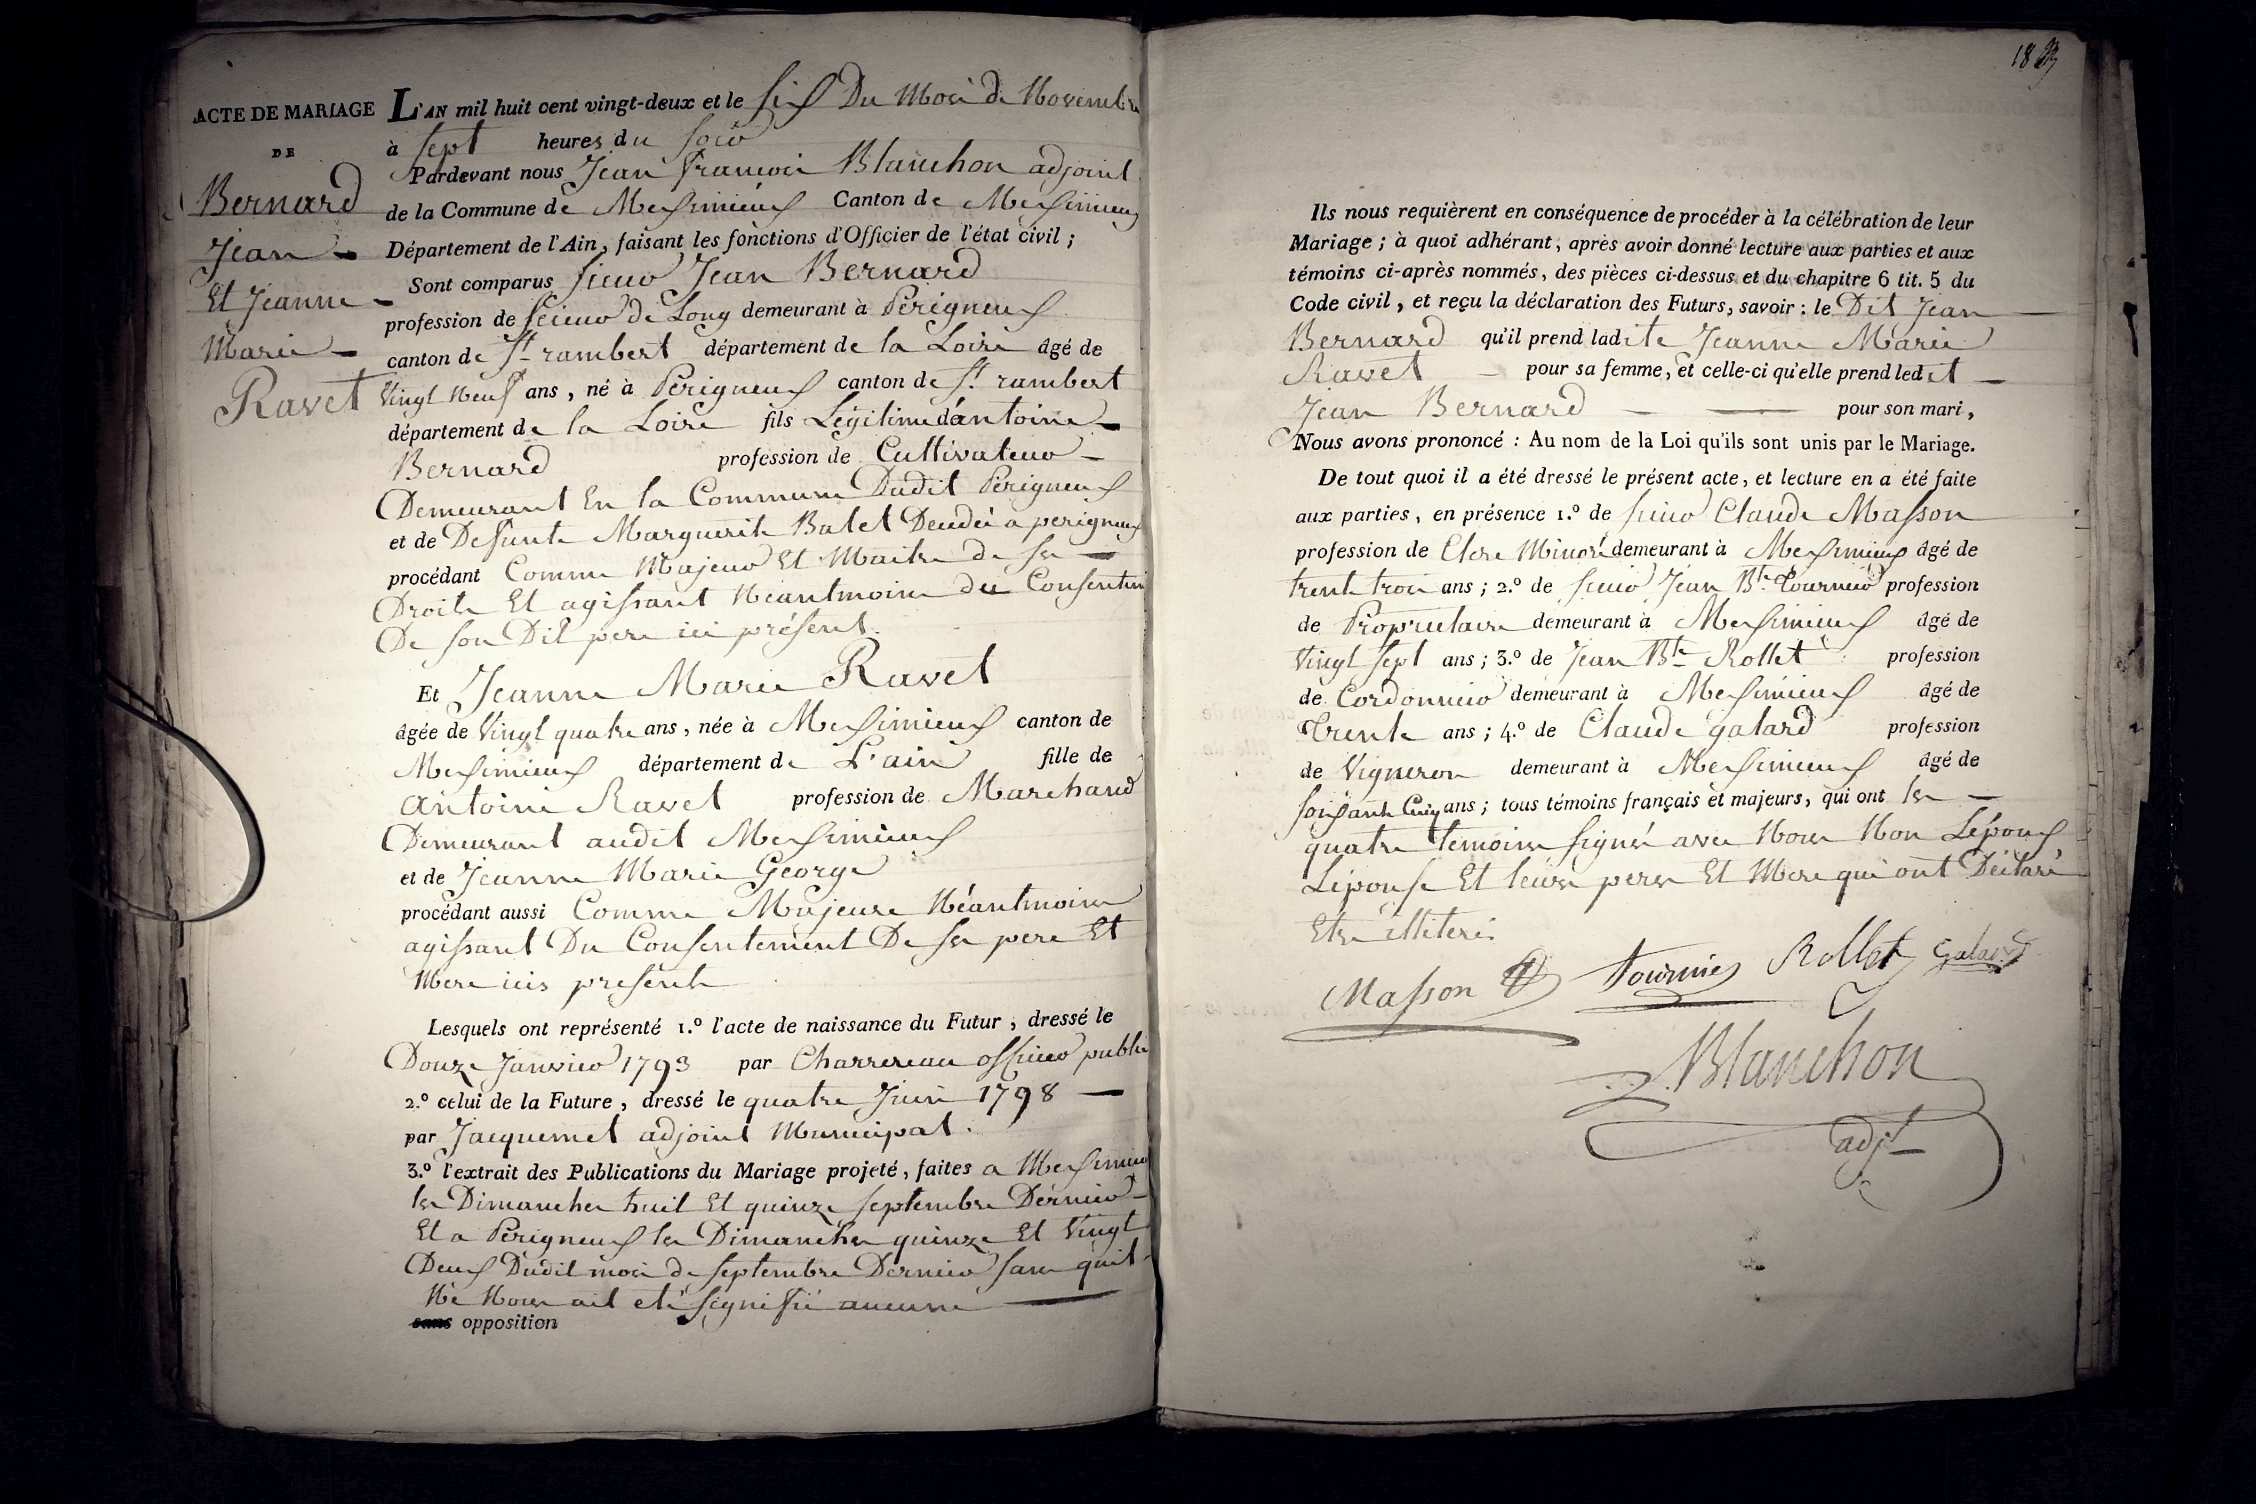 ACTE DE MARIAGE
DE
Bernard
Jean
Et Jeanne
Marie
Ravet
L'AN mil huit cent vingt-deux et le six Du Mois de Novembre
à sept heures du soir
Pardevant nous Jean francois Blanchon adjoint
de la Commune de Meximieux Canton de Meximieux
Département de l'Ain, faisant les fonctions d'Officier de l'état civil ;
Sont comparus sieur Jean Bernard
profession de scieur de Long demeurant à Périgneux
canton de St rambert département de la Loire âgé de
Vingt Neuf ans, né à Périgneux canton de St rambert
département de la Loire fils Légitime d'antoine
Bernard profession de Cultivateur
Demeurant En la Commune Dudit Périgneux
et de Defunte Marguerite Balet Deudée a perigneux
procédant Comme Majeur Et Maitre de ses
Droits Et agissant Néantmoins du Consentem
De son Dit pere ici présent
Et Jeanne Marie Ravet
âgée de Vingt quatre ans, née à Meximieux canton de
Meximieux département de L'ain fille de
Antoine Ravet profession de Marchand
Demeurant audit Meximieux
et de Jeanne Marie George
procédant aussi Comme Majeure Néantmoins
agissant Du Consentement De ses pere Et
Mere icis présents
Lesquels ont représenté 1.º l'acte de naissance du Futur, dressé le
Douze Janvier 1793 par Charrereau officier public
2.º celui de la Future, dressé le quatre Juin 1798
par Jacquemet adjoint Municipal.
3.º l'extrait des Publications du Mariage projeté, faites a Meximieux
les Dimanches huit Et quinze septembre Dernier
Et a Périgneux les Dimanches quinze Et Vingt
Deux Dudit mois de septembre Dernier sans qu'il
Ne Nous ait eté signifié aucune
sans opposition
Ils nous requièrent en conséquence de procéder à la célébration de leur
Mariage ; à quoi adhérant, après avoir donné lecture aux parties et aux
témoins ci-après nommés, des pièces ci-dessus et du chapitre 6 tit. 5 du
Code civil, et reçu la déclaration des Futurs, savoir : le Dit Jean
Bernard qu'il prend ladite Jeanne Marie
Ravet pour sa femme, et celle-ci qu'elle prend ledit
Jean Bernard pour son mari,
Nous avons prononcé : Au nom de la Loi qu'ils sont unis par le Mariage.
De tout quoi il a été dressé le présent acte, et lecture en a été faite
aux parties, en présence 1.º de sieur Claude Masson
profession de Clerc Minoré demeurant à Meximieux âgé de
trente trois ans ; 2.º de sieur Jean Bte Tournier profession
de Proprietaire demeurant à Meximieux âgé de
Vingt sept ans ; 3.º de Jean Bte Rollet profession
de Cordonnier demeurant à Meximieux âgé de
Trente ans ; 4.º de Claude galard profession
de Vigneron demeurant à Meximieux âgé de
soixante Cinq ans ; tous témoins français et majeurs, qui ont les
quatre temoins signés avec Nous Non Lépoux
Lépouse Et leurs peres Et Mere qui ont Déclaré
Etre illiterés
Masson Tournier Rollet Galard
Blanchon
adjt